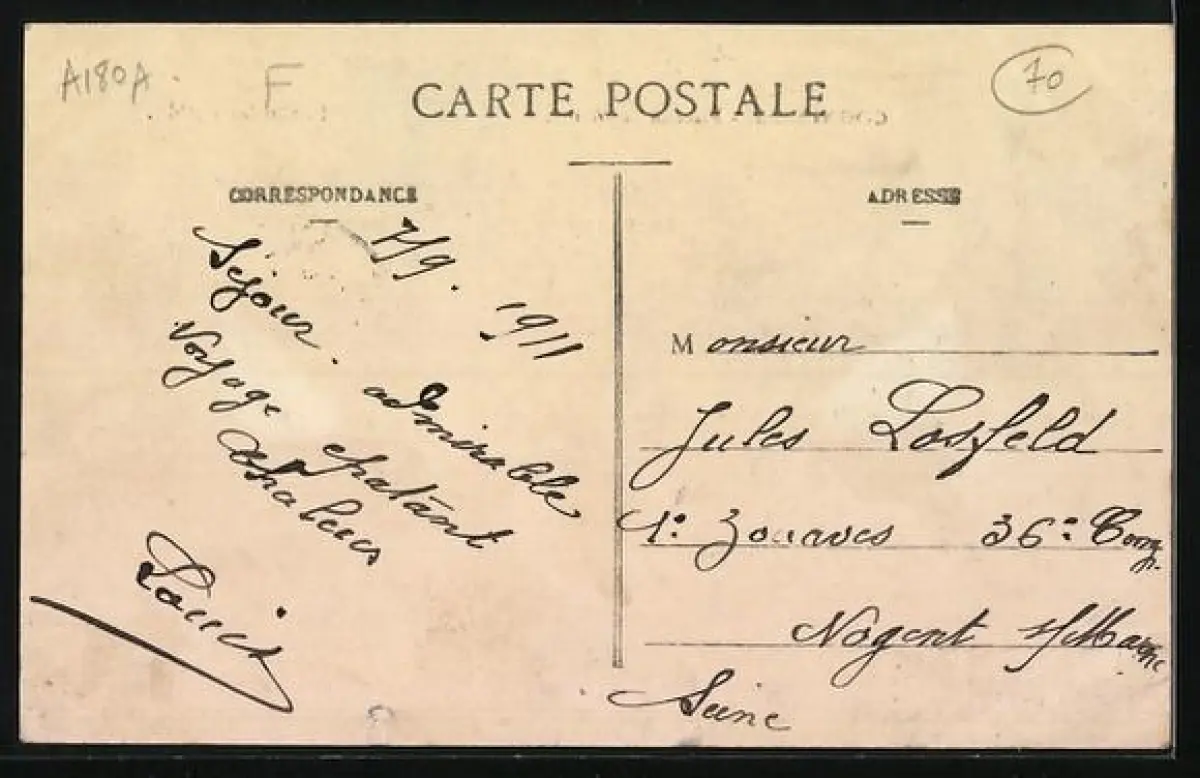 A180A
F
70
CARTE POSTALE
CORRESPONDANCE
ADRESSE
7/9. 1911
Séjour. admirable
Voyage epatant
Chaleurs
Louis
Monsieur
Jules Losfeld
1e: Zouaves 36e: Comp.
Nogent s/Marne
Seine